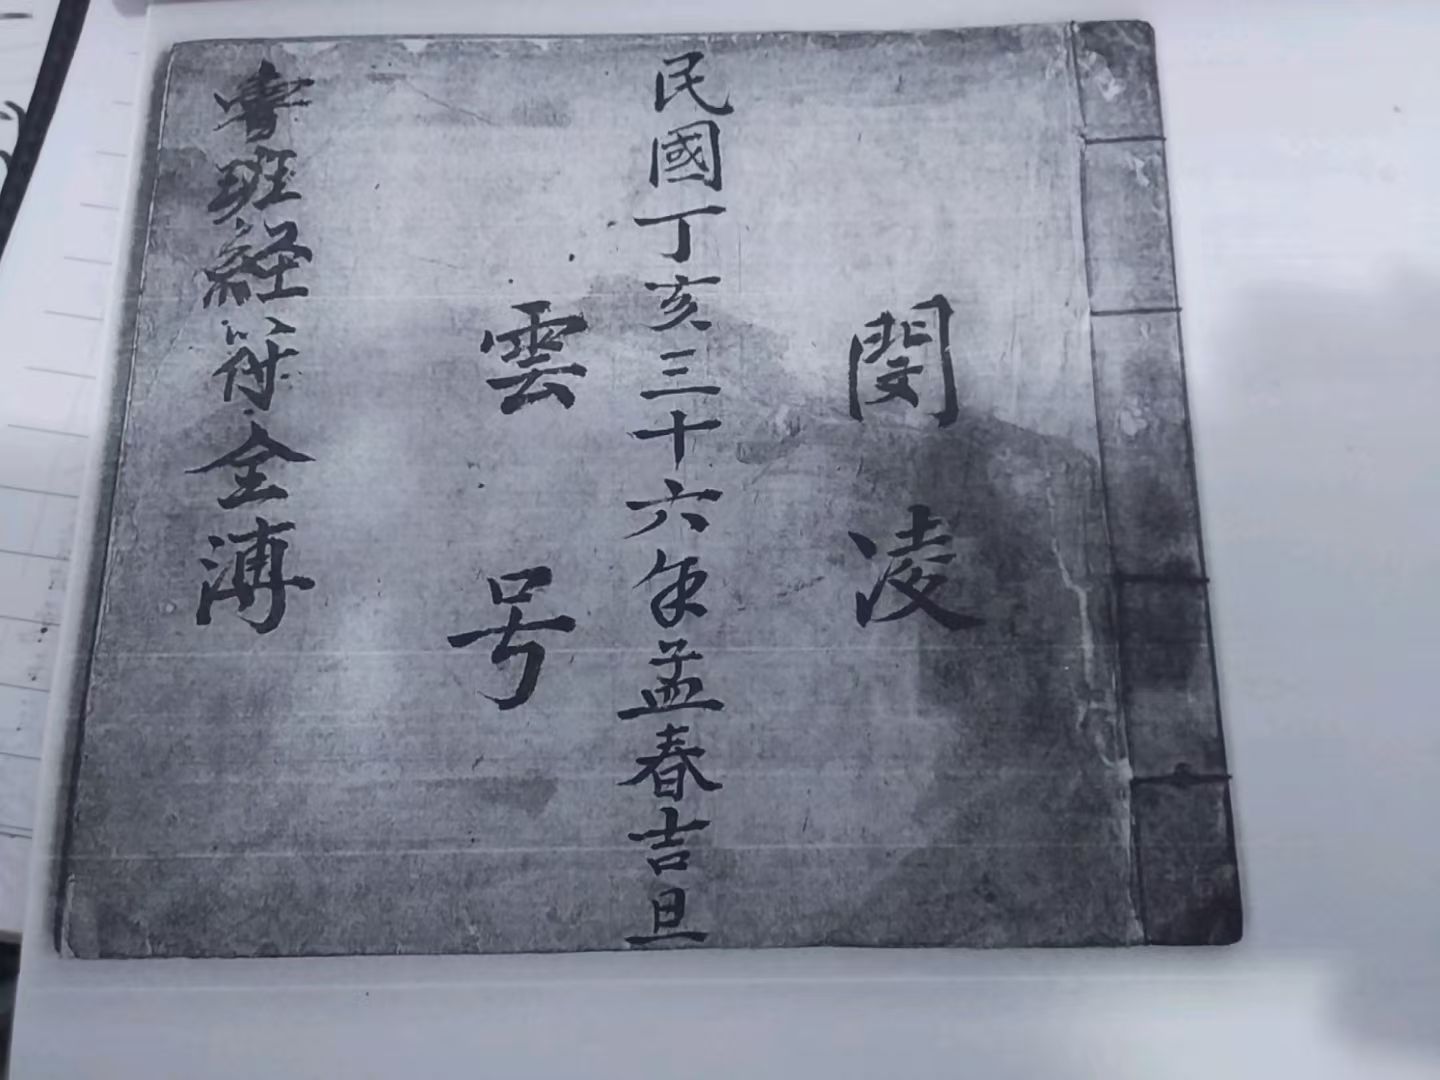 閔凌
民國丁亥三十六年孟春吉旦
雲号
魯班経符全溥